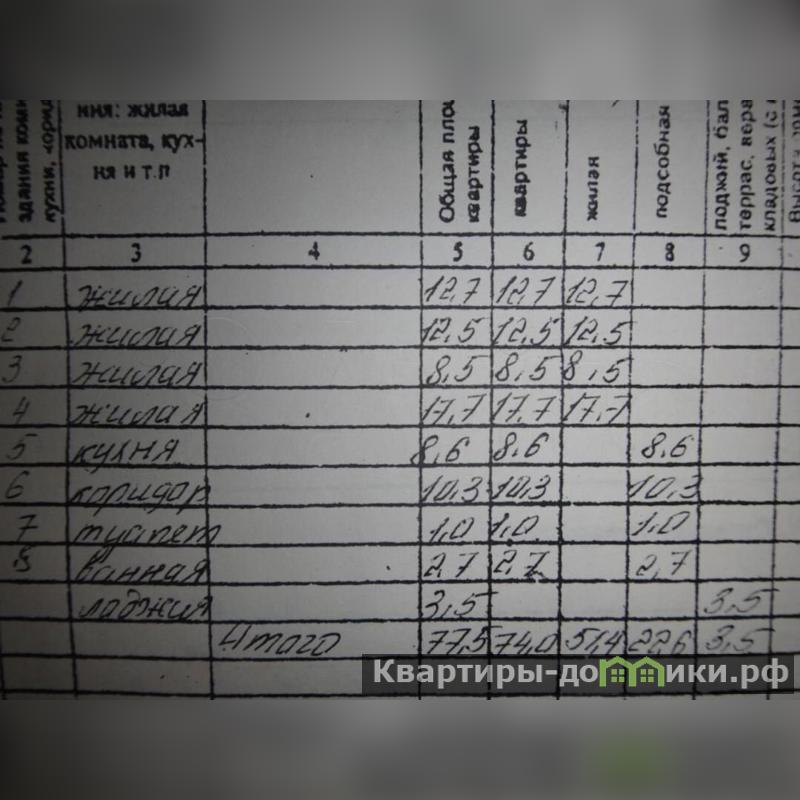 здания комн
кухни, корид
ния: жилая
комната, кух-
ня и т.п
Общая площ
квартиры
квартиры
жилая
подсобная
лоджий, бал
террас, вера
кладовых (с н
Высота пом
2 3 4 5 6 7 8 9
1 жилая 12,7 12,7 12,7
2 жилая 12,5 12,5 12,5
3 жилая 8,5 8,5 8,5
4 жилая 17,7 17,7 17,7
5 кухня 8,6 8,6 8,6
6 коридор 10,3 10,3 10,3
7 туалет 1,0 1,0 1,0
8 ванная 2,7 2,7 2,7
лоджия 3,5 3,5
Итого 77,5 74,0 51,4 22,6 3,5
Квартиры-домики.рф